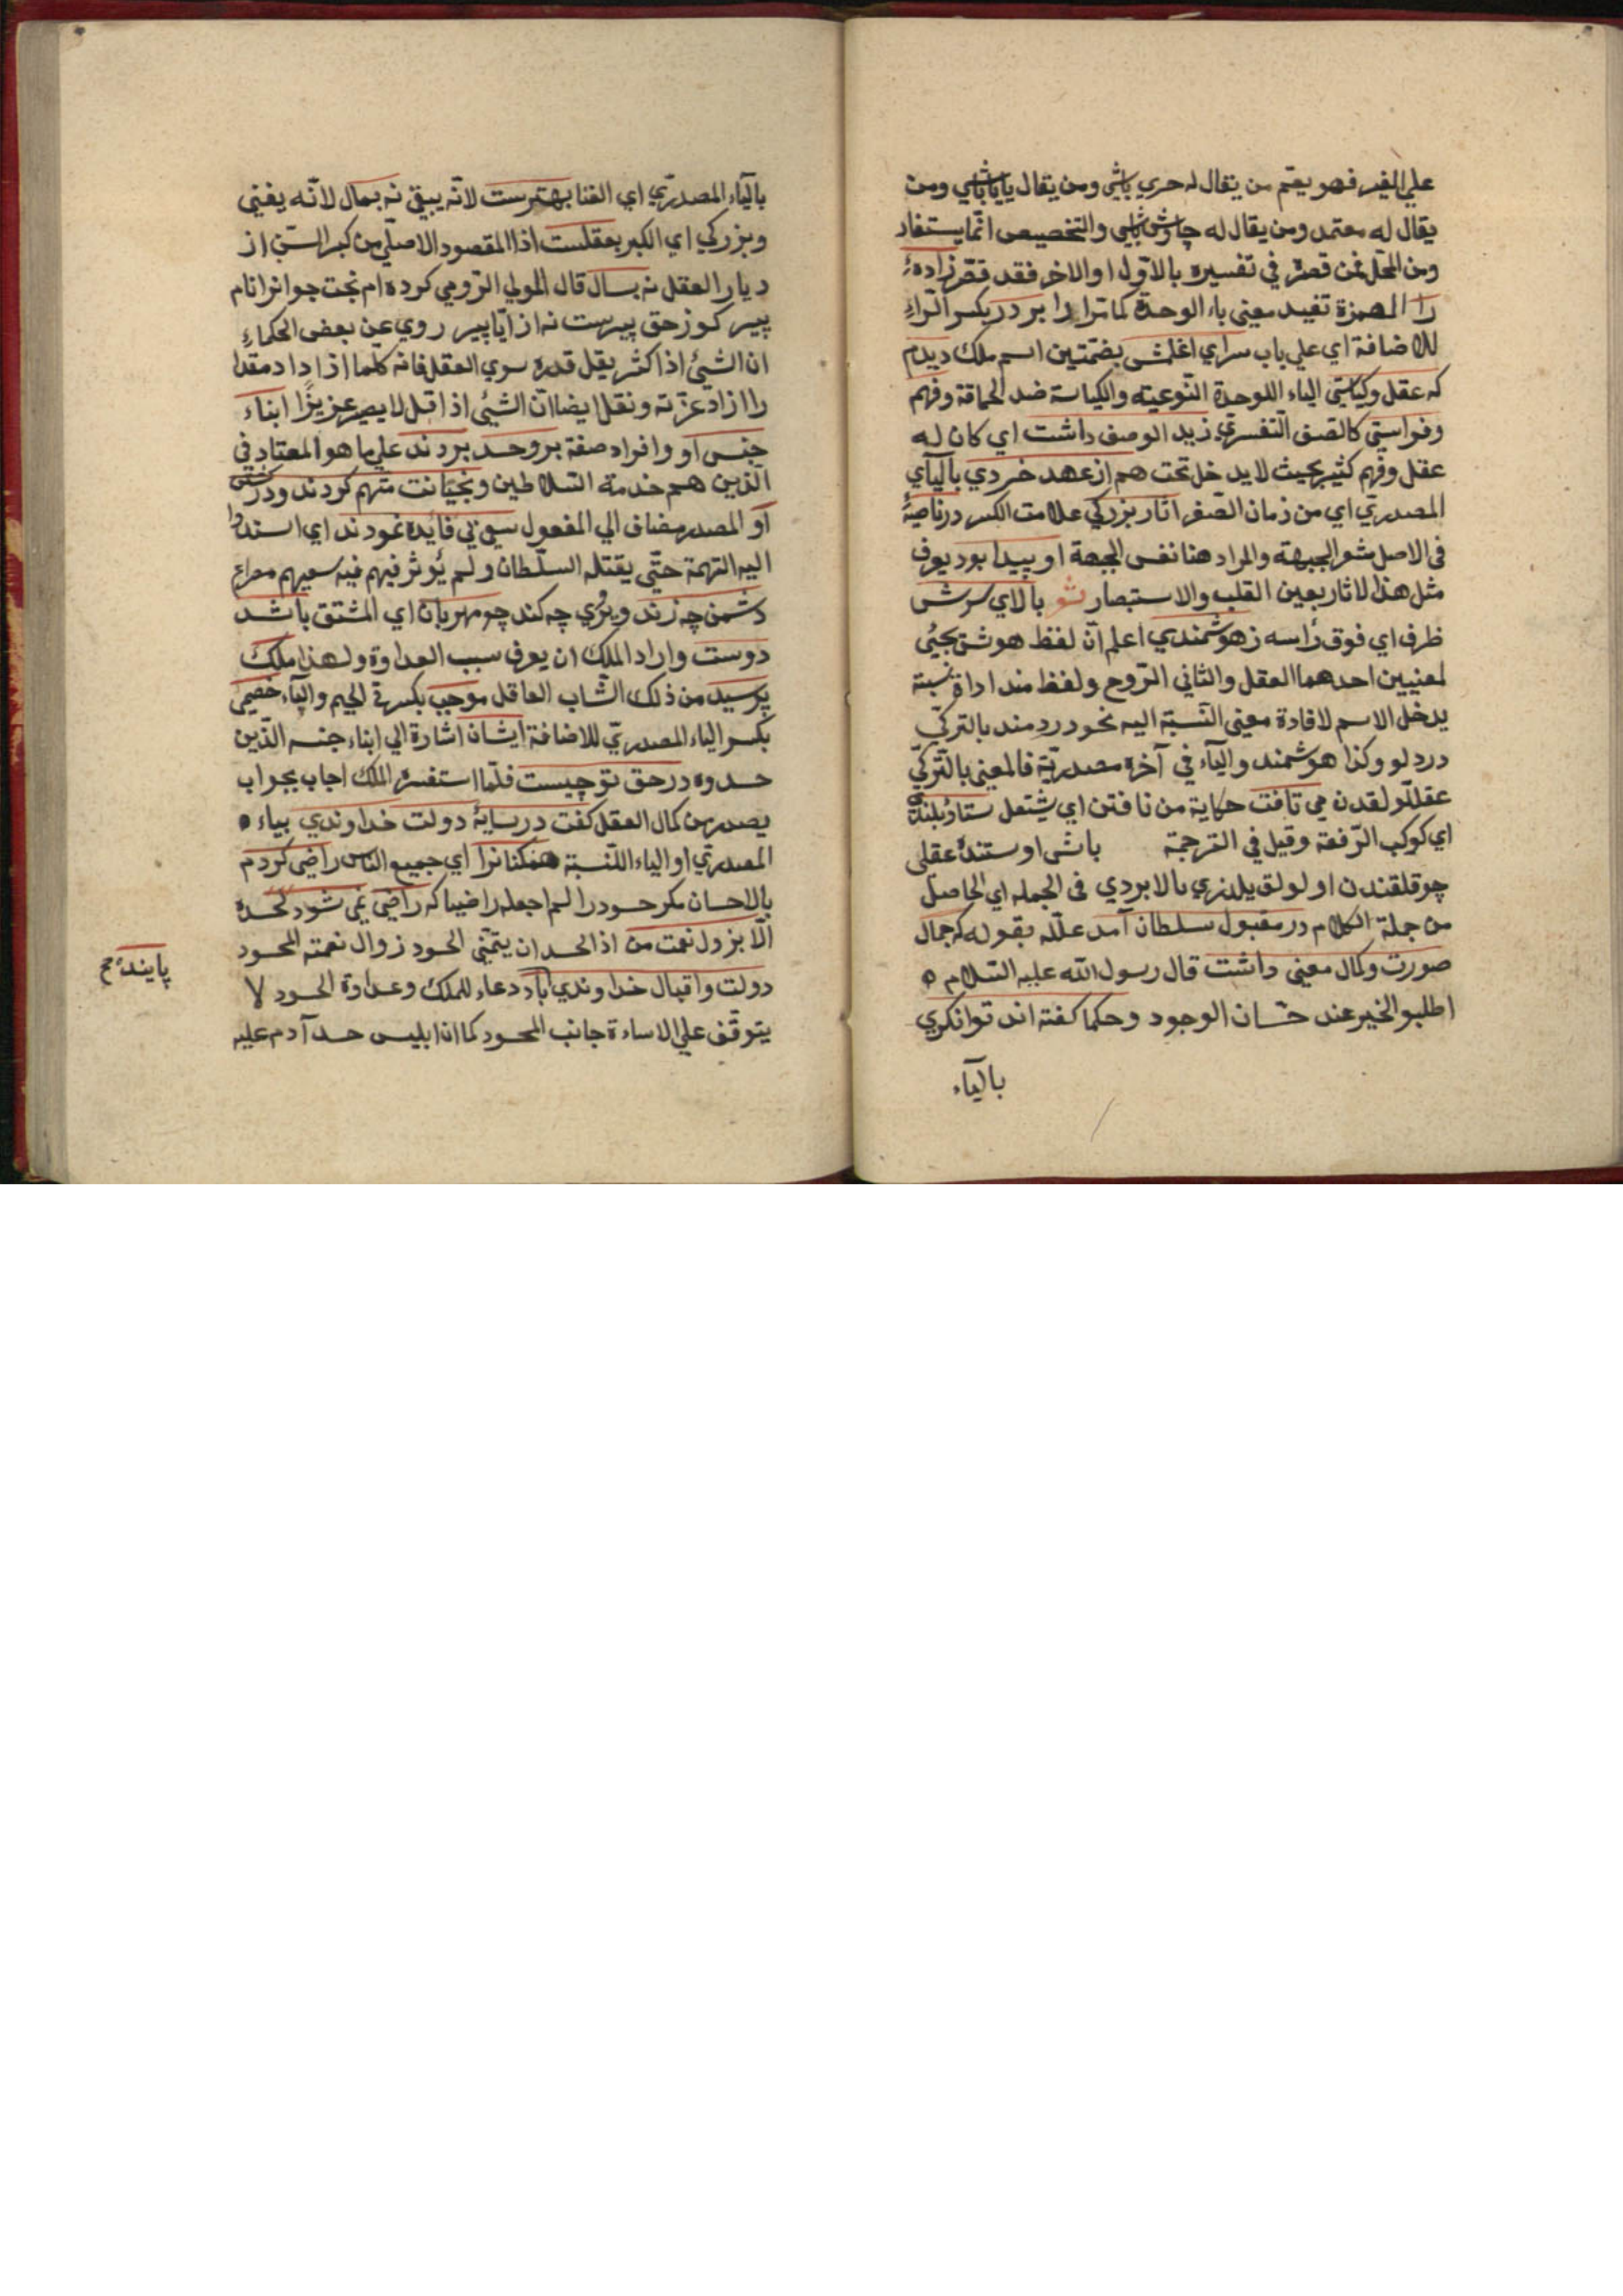 علي الغير فهو يعمّ من يقال له حري باشي ومن يقال ياياباشي ومن
يقال له معتمد ومن يقال له چاوش باشي والتخصيص انّما يستفاد
ومن المحلّ فمن قصره في تفسيره بالاوّل او الاخر فقد قصّر زادهٔ
را الهمزة تفيد معني ياء الوحدة كما تراه را بر در بكسر الرّاء
للاضافة اي علي باب سراي اغلمش بضمّتين اسم ملك ديدم
كه عقل وكياستي الياء اللوحدة النّوعيته والكياسة ضد الحماقة وفهم
وفراستي كالصف التفسريّ زيد الوصف داشت اي كان له
عقل وفهم كثير بحيث لا يدخل تحت هم از عهد خردي بالياي
المصدريّ اي من زمان الصّغر اثار بزركي علامت الكبر در ناصيهٔ
في الاصل شعر الجبهة والمراد هنا نفس الجبهة او پيدا بود يعرف
مثل هذا لاثار بعين القلب والاستبصار شو بالاي سرش
ظرف اي فوق رأسه زهوشمندي اعلم انّ لفظ هوش يجيئ
لمعنيين احدهما العقل والثاني الرّوح ولفظ مند اداة نسبة
يدخل الاسم لافادة معني النّسبة اليه نحو دردمند بالتركيّ
دردلو وكذا هوشمند والياء في آخره مصدريّة فالمعني بالتّركيّ
عقللولقدن مي تافت حكاية من تافتن اي يشتعل ستارهٔ بلندي
اي كوكب الرّفعة وقيل في الترجمة باشي اوستنده عقلي
چوقلقندن اولولق يلدزي بالابردي في الجمله اي الحاصل
من جملة الكلام در مقبول سلطان آمد علّله بقوله كه جمال
صورت وكمال معني داشت قال رسول الله عليه السّلام ه
اطلبو الخير عند حسان الوجود وحكما كفته اند توانكري
بالياء
بالياء المصدريّ اي الغنا بهترست لانّه يبقي نه بمال لانّه يفني
وبزركي اي الكبر بعقلست اذا المقصود الاصلّي من كبر السّن از
ديار العقل نه بسال قال المولي الرّومي كرده ام بخت جوانرا نام
پير كوز حق پيرست نه از ايّا پير روي عن بعض الحكماء
ان الشيئ اذا كثر يقل قدره سوي العقل فانه كلّما ازداد مقدا
را ازاد عزّته ونقل ايضا انّ الشيئي اذا قل لا يصير عزيزًا ابناء
جنس او وافراد صفة بروحسد بردند علي ما هو المعتاد في
الّذين هم خدمة السّلاطين وبخيانت متّهم كردند ودر كشتن
او المصدر مضاف الي المفعول سعي بي فايده نمودند اي اسندوا
اليه التهمة حتّي يقتله السلّطان ولم يُوثر فيهم فيه سعيهم مصراع
دشمن چه زند ويروي چه كند چو مهربان اي المشتق باشد
دوست واراد الملك ان يعرف سبب العداوة ولهذا ملك
پرسيد من ذلك الشّاب العاقل موجب بكسرتي الجيم والياء خصمي
بكسر الياء المصدريّ للاضافة ايشان اشارة الي ابناء جنسه الّذين
حسدوه در حق تو چيست فلمّا استفسره الملك اجاب بجواب
يصدر من كمال العقل كفت در سايهٔ دولت خداوندي بياء ه
المصدريّ او الياء اللّنسبة همكنانرا اي جميع النّاس راضي كردم
بالاحسان مكر حسود را لم اجعله راضيا كه راضي نمي شود لحسده
الّا بزول نعمت من اذ الحسد ان يتمنّي الحسود زوال نعمته المحسود
دولت واقبال خداوندي باد دعاء للملك وعداوة الحسود لا
يتوقّف علي الاساءة جانب المحسود كما ان ابليس حسد آدم عليه
پاينده صح